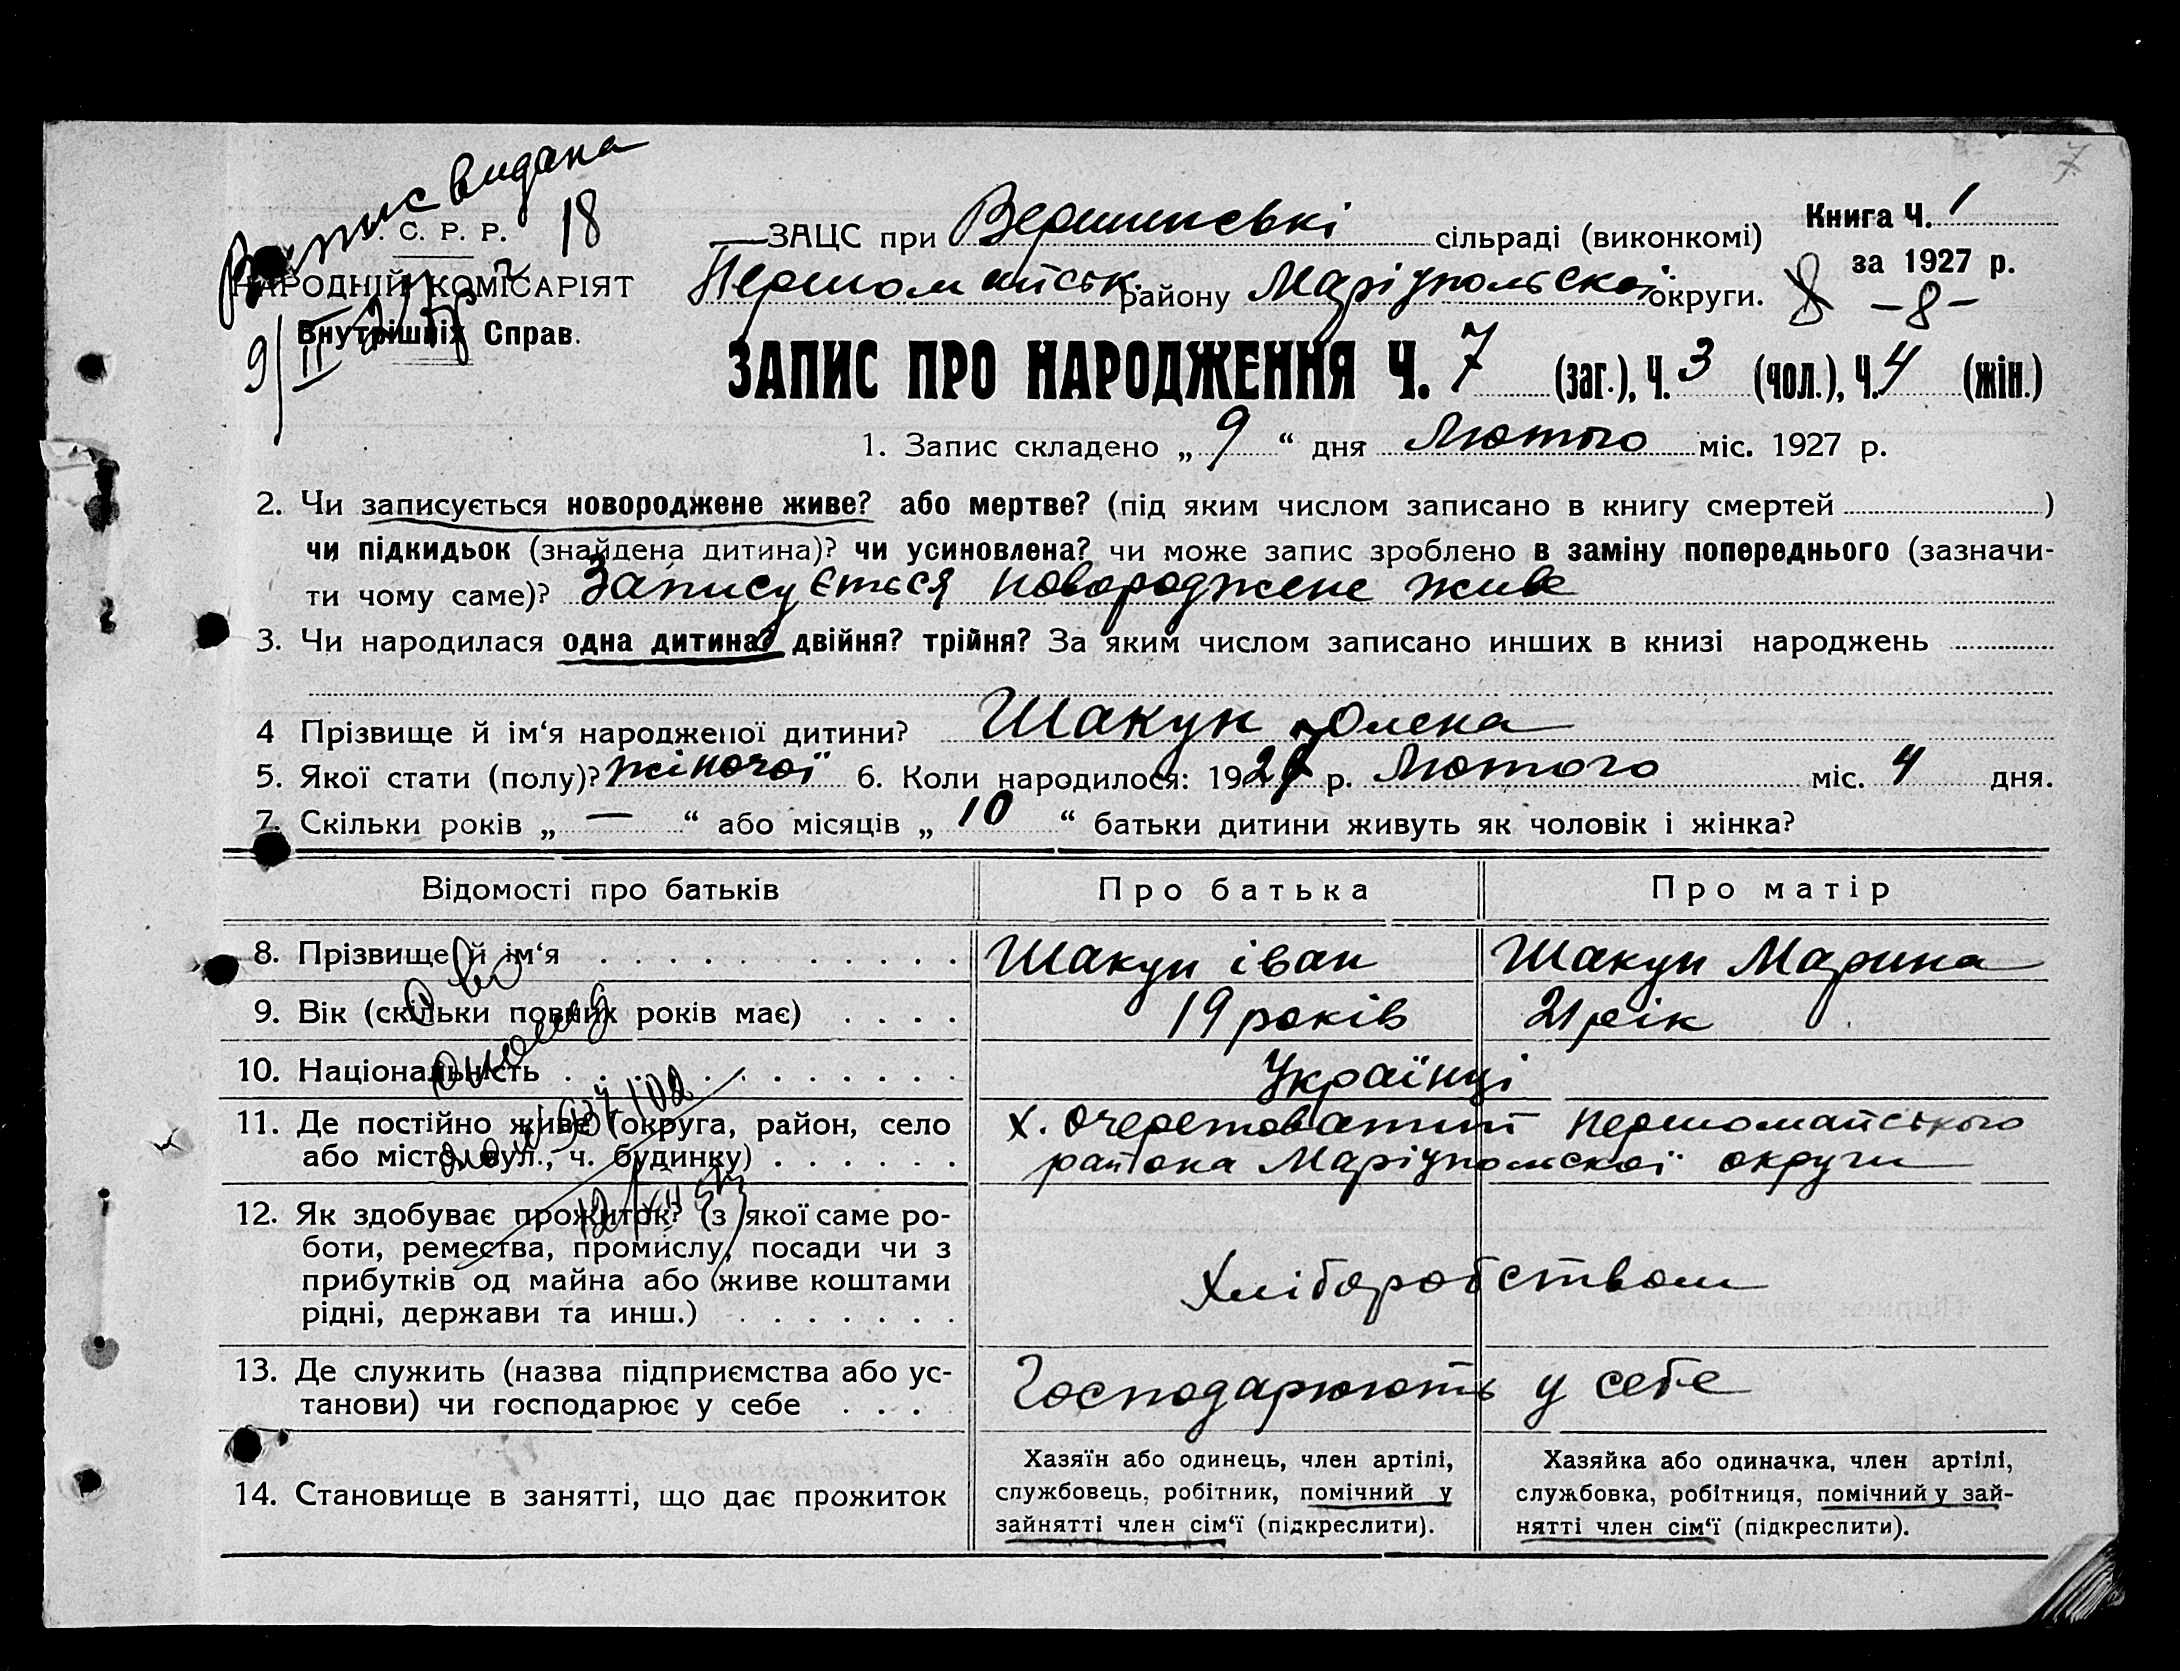 7
Виписс видана
18
С. Р. Р.
НАРОДНІЙ КОМІСАРІЯТ
Внутрішніх Справ.
9/II
ЗАЦС при Вершинські сільраді (виконкомі)
Книга Ч. 1
Першомайськ. району Маріупольскої округи.
за 1927 р.
8 -8-
ЗАПИС ПРО НАРОДЖЕННЯ Ч. 7 (заг.), Ч. 3 (чол.), Ч. 4 (жін.)
1. Запис складено „ 9 “ дня Лютого міс. 1927 р.
2. Чи записується новороджене живе? або мертве? (під яким числом записано в книгу смертей )
чи підкидьок (знайдена дитина)? чи усиновлена? чи може запис зроблено в заміну попереднього (зазначи-
ти чому саме)? Записується новороджене живе
3. Чи народилася одна дитина? двійня? трійня? За яким числом записано инших в книзі народжень
4 Прізвище й ім‘я народженої дитини? Шакун Олена
5. Якої стати (полу)? жіночої 6. Коли народилося: 1927 р. Лютого міс. 4 дня.
7. Скільки років „ — “ або місяців „ 10 “ батьки дитини живуть як чоловік і жінка?
Відомості про батьків Про батька Про матір
8. Прізвище й ім‘я Шакун іван Шакун Марина
9. Вік (скільки повних років має) 19 років 21 рік
10. Національність Українці
11. Де постійно живе (округа, район, село х. Очеретоватий Першомайського
або місто, вул., ч. будинку) района Маріупольскої округи
12. Як здобуває прожиток? (з якої саме ро-
боти, ремества, промислу, посади чи з
прибутків од майна або живе коштами Хліборобством
рідні, держави та инш.)
13. Де служить (назва підприємства або ус-
танови) чи господарює у себе Господарюють у себе
14. Становище в занятті, що дає прожиток
Хазяїн або одинець, член артілі,
службовець, робітник, помічний у
зайнятті член сім‘ї (підкреслити).
Хазяйка або одиначка, член артілі,
службовка, робітниця, помічний у зай-
нятті член сім‘ї (підкреслити).